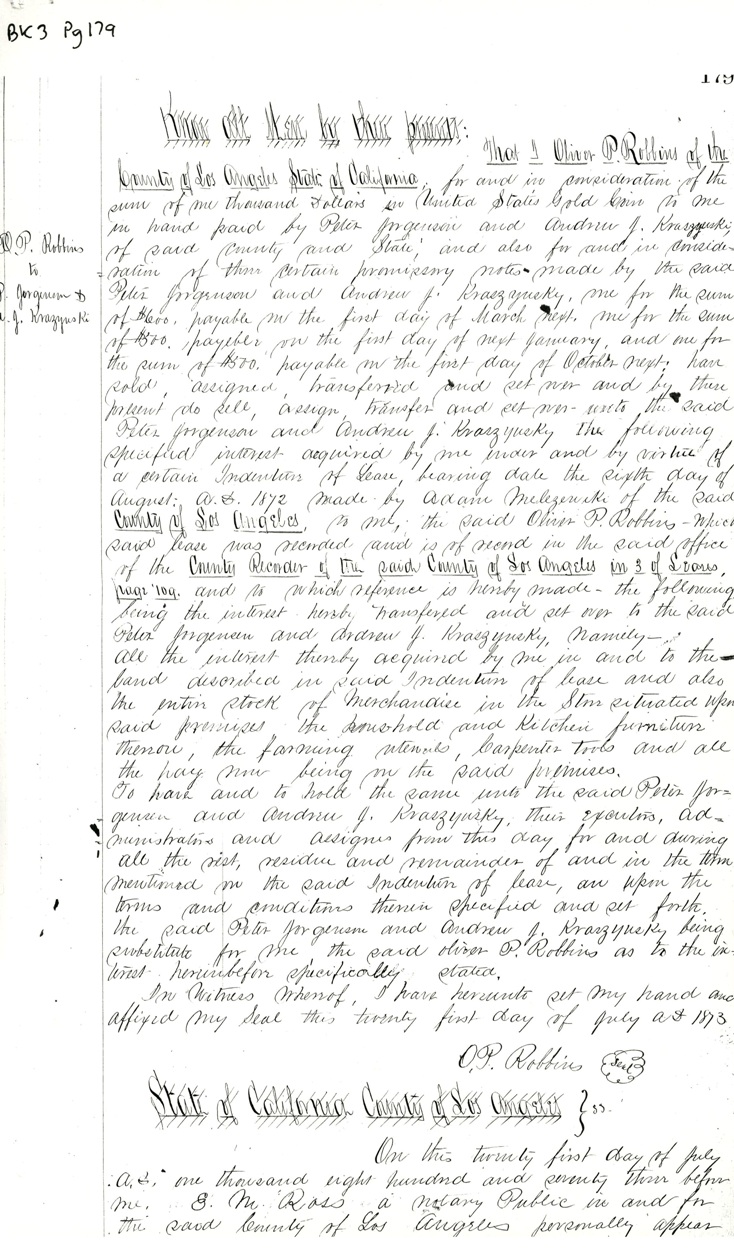 BK3 Pg179
179
Know all Men by these presents:
That I Oliver P. Robbins of the
County of Los Angeles State of California, for and in consideration of the
sum of one thousand Dollars in United States Gold Coin to me
in hand paid by Peter Jorgensen and Andrew J. Kraszynsky,
of said County and State; and also for and in conside-
ration of three certain promissory notes made by the said
Peter Jorgensen and Andrew J. Kraszynsky, one for the sum
of $600. payable on the first day of March next. one for the sum
of $500. payable on the first day of next January, and one for
the sum of $500. payable on the first day of October next: have
sold, assigned, transferred and set over and by these
present do sell, assign, transfer and set over unto the said
Peter Jorgensen and Andrew J. Kraszynsky the following
specified interest acquired by me under and by virtue of
a certain Indenture of Lease, bearing date the sixth day of
August, A.D. 1872 made by Adam of the said
County of Los Angeles, to me, the said Oliver P. Robbins - which
said lease was recorded and is of record in the said office
of the County Recorder of the said County of Los Angeles in 3 of Leases,
page 109. and to which reference is hereby made - the following
being the interest hereby transfered and set over to the said
Peter Jorgensen and Andrew J. Kraszynsky, namely -
all the interest thereby acquired by me in and to the
land described in said Indenture of lease and also
the entire stock of Merchandise in the Store situated upon
said premises the household and Kitchen furniture
thereon, the farming utensils, Carpenter tools and all
the hay now being on the said premises.
To have and to hold the same unto the said Peter Jor=
gensen and Andrew J. Kraszynsky, their executors, ad=
ministrators and assignes from this day for and during
all the rest, residue and remainder of and in the term
mentioned in the said Indenture of lease, an upon the
terms and conditions therein specified and set forth,
the said Peter Jorgensen and Andrew J. Kraszynsky being
substitute for me, the said oliver P. Robbins as to the in-
terest hereinbefore specifically stated.
In Witness whereof, I have hereunto set my hand and
affixed my Seal this twenty first day of July A.D 1873
O.P. Robbins Seal
State of California County of Los Angeles } ss.
On this twenty first day of July
A.D. one thousand eight hundred and seventy three before
me. E. M. Ross a notary Public in and for
the said County of Los Angeles personally appear
O. P. Robbins
to
P. Jorgensen &
A. J. Krazynski